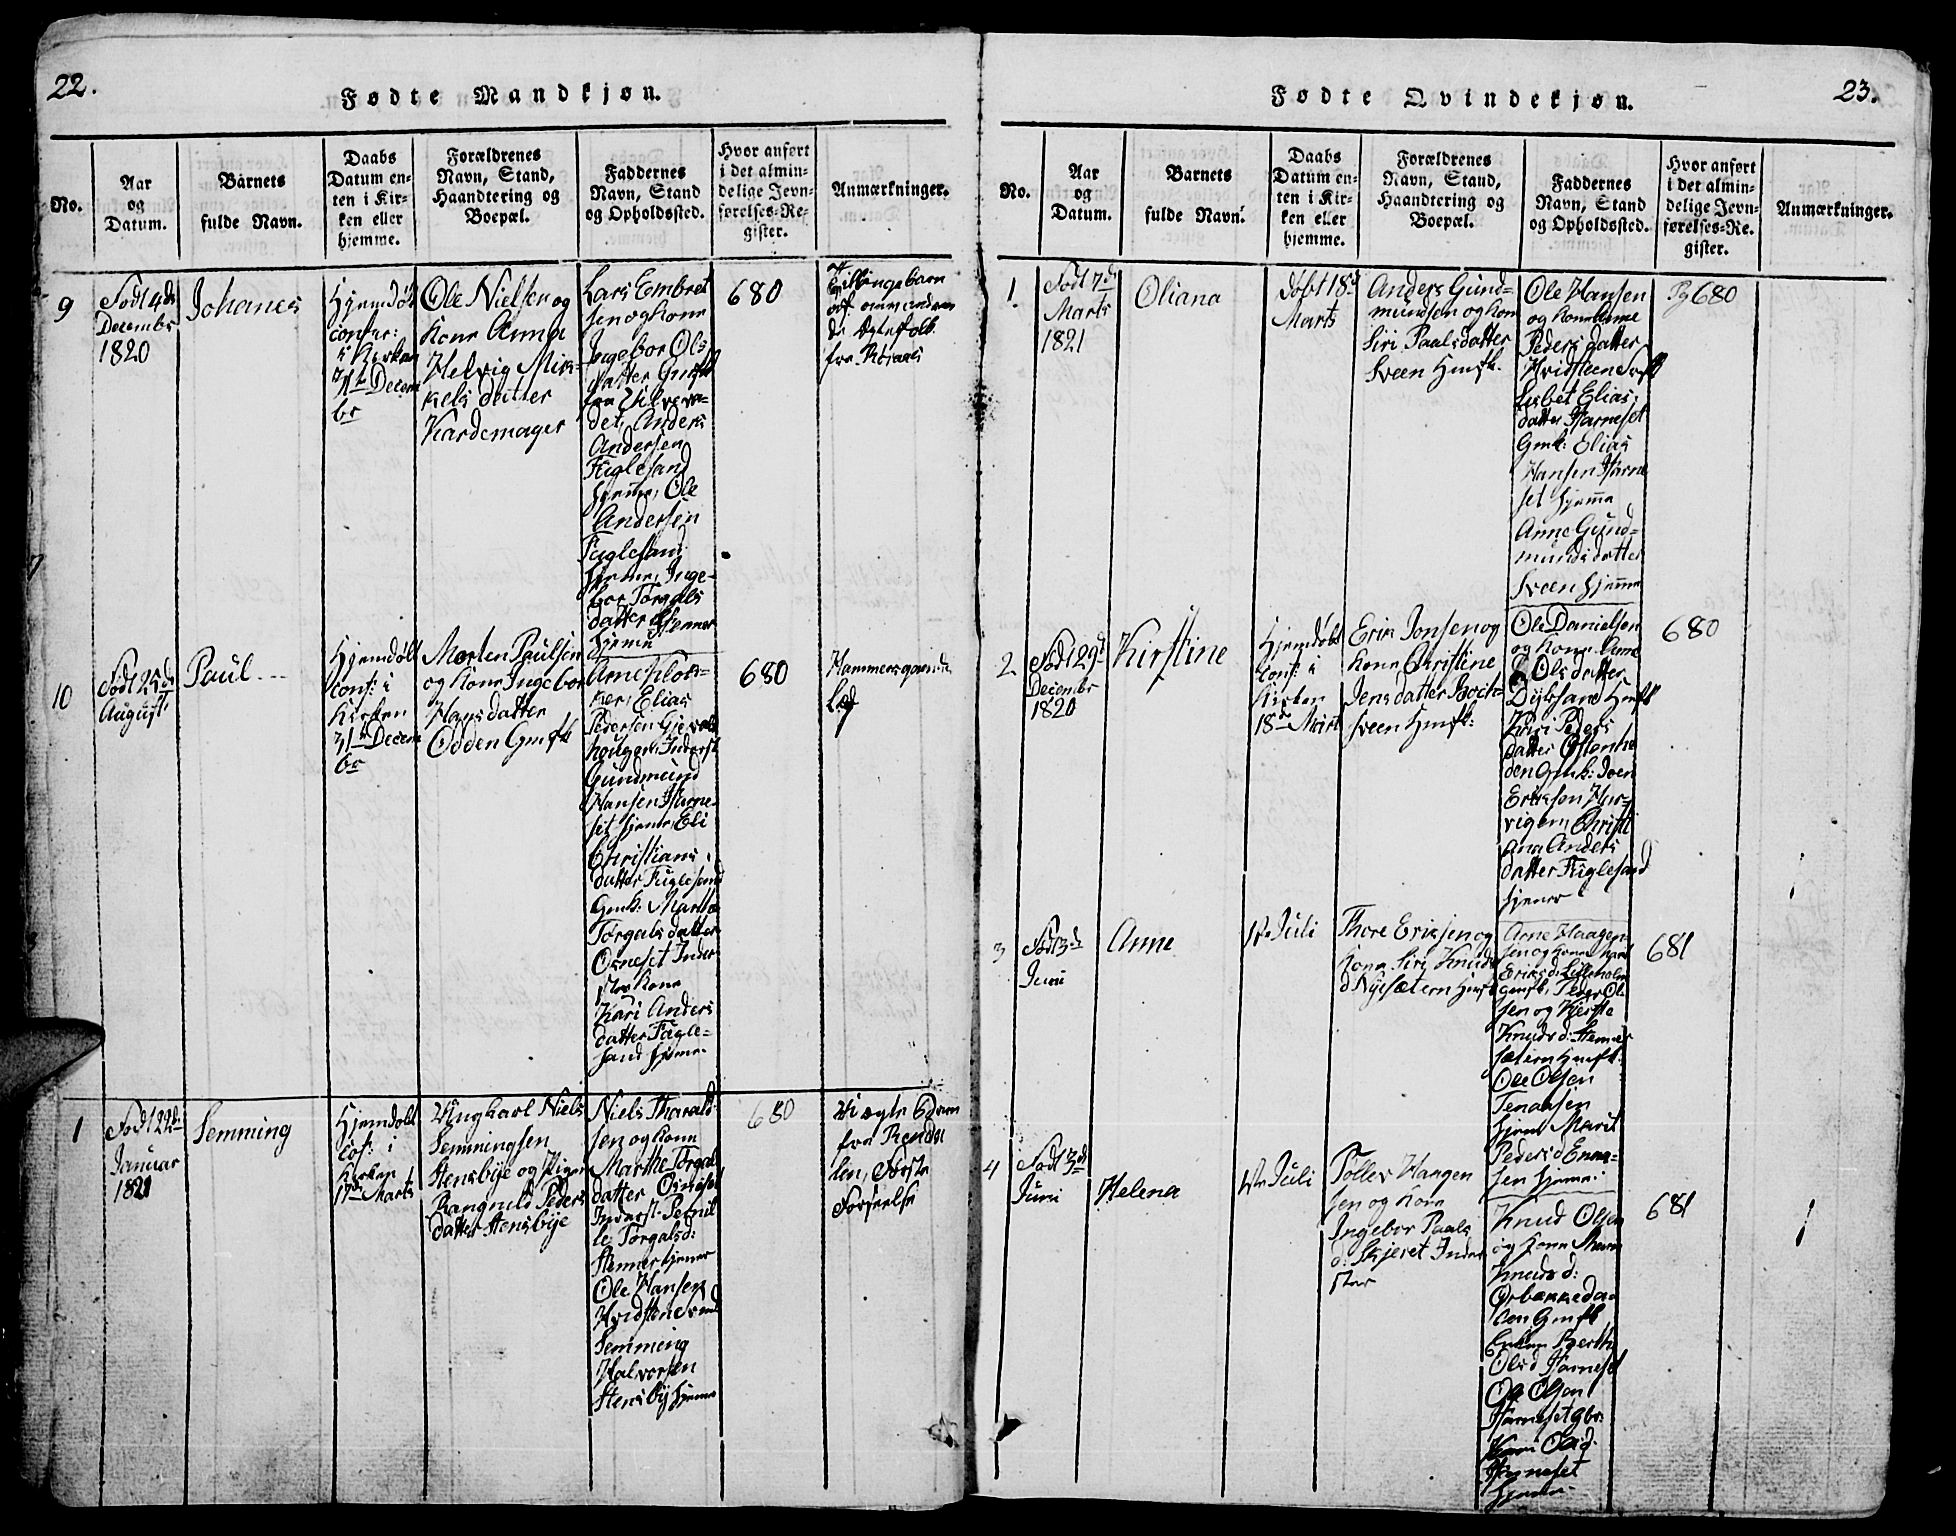 22.
Fødte Mandkjøn.
No.
Aar
og
Datum.
Barnets
fulde Navn.
Daabs
Datum en-
ten i Kir-
ken eller
hjemme.
Forældrenes
Navn, Stand,
Haandtering og
Boepæl.
Faddernes
Navn, Stand
og Opholdssted.
Hvor anført
i det almin-
delige Jevn-
førelses-Re-
gister.
Anmærkninger.
9
Født 4de
Decembr
1820
Johanes
Hjemdøbt
confer:
i Kirken
31te Decem
br
Ole Nielsen og
Kone Anna
Helvig Mik-
kels datter
Kardemager
Lars Embret
sen og Kone
Ingebor Ols
datter Gmfk
det, Anders
Andersen
Fuglesand
hjeme, Ole
Andersen
Fuglesand
hjeme, Inge-
bor Torgals
datter
hjeme
680
Tvillingebarn
af omvandren
de Egtefolk
fra Røraas
10
Født 25de
August
Paul
Hjemdøbt
conf: i
Kirken
31te Decem
br
Morten Paulsen
og Kone Ingebor
Hansdatter
Odden Gmfk
Elias
Pedersen
Gundmund
Hansen Harne-
set hjeme, Eli
Christians
datter Fuglesand
Gmk: Marthe
Torgals datter
Osneset Inder
Kone
Kari Anders
datter Fugle-
sand hjeme.
680
1
Født 29de
Januar
1821
Semming
Hjemdøbt
cof: i
Kirken
17de Marts
Ungkarl Niels
Semmingsen
Stensbye og Pigen
Rangnild Peders
datter Stensbye
Niels Tharald-
sen og Kone
Marthe Torgals
datter Osneset
Inderst. Pernil
le Torgalsd:
hjeme
Ole Hansen
Semming
Halvorsen
Stensby hjeme
680
fra Renda
len, Første
Forseelse
23.
Fødte Qvindekjøn.
No.
Aar
og
Datum.
Barnets
fulde Navn.
Daabs
Datum en-
ten i Kir-
ken eller
hjemme.
Forældrenes
Navn, Stand,
Haandtering og
Boepæl.
Faddernes
Navn, Stand
og Opholdssted.
Hvor anført
i det almin-
delige Jevn-
førelses-Re-
gister.
Anmærkninger.
1.
Født 7de
Marts
1821
Oliana
Døbt 18de
Marts
Anders Gund-
mundsen og Kone
Siri Paalsdatter
Sveen Gmfk.
Ole Hansen
og Kone Anne
Peders datter
Lisbet Elias
datter Harneset
Gmk: Elias
Hansen Harne
set hjeme
Anne Gund-
munds datter
Sveen hjeme
Pg 680
2
Født 29de
Decembr
1820
Kirstine
Hjemdøbt
conf: i
Kirken
18de Marts
Erik Jonsen og
Kone Christine
Jensdatter
Sveen Gmfk:
Ole Danielsen
og Kone Anne
Ols datter
Dybsand Gmfk
Kari Peders
datter
Eriksen
Christi
ana Anders
datter Fuglesand
hjeme
680
3
Født 3de
Juni
Anne
1ste Juli
Thore Eriksen og
Kone Siri Knuds
d Nysætern Gmfk
Arne Haagen-
sen og Kone Kari
Eriksd: Lilleholm
gmfk, Peder Ol
sen og Kjerste
Knudsd:
sætern Gmfk:
Ole Olsen
hjeme Marit
Pedersd
hjeme.
681
4
Juni
Helena
1ste Juli
Tollev Haagen
sen og Kone
Ingebor Paals
d: Skjeret Inder
ster
Knud Olsen
og Kone
Knudsd:
Gmfk
Enken Berthe
Olsd Harneset
Ole Olsen
Harneset
Kari Olsd.
Harneset
hjeme.
681